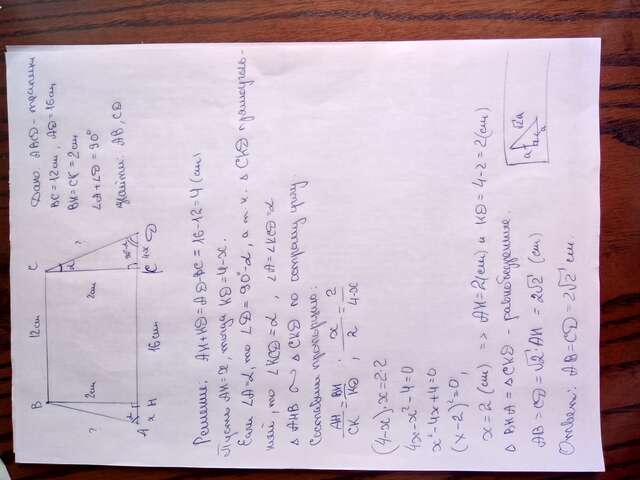 Дано: ABCD - трапеция
BC=12см, AD=16см,
BH=CK=2см
∠A+∠D=90°
Найти: AB, CD
B 12см C
? 2см 2см α ?
α 90°-α
A x H 16см K 4-x D
Решение. AH+KD=AD-BC=16-12=4 (см)
Пусть AH=x, тогда KD=4-x.
Если ∠A=α, то ∠D=90°-α, а т.к. △CKD прямоуголь-
ный, то ∠KCD=α, ∠A=∠KCD=α
△AHB ~ △CKD по острому углу.
Составим пропорцию:
AH/CK = BH/KD ; x/2 = 2/4-x
(4-x)·x=2·2
4x-x²-4=0
x²-4x+4=0
(x-2)²=0,
x=2 (см) => AH=2(см) и KD=4-2=2(см)
△BHA = △CKD - равнобедренные.
AB=CD=√2·AH = 2√2 (см)
Ответ: AB=CD=2√2 см.
a √2a
a